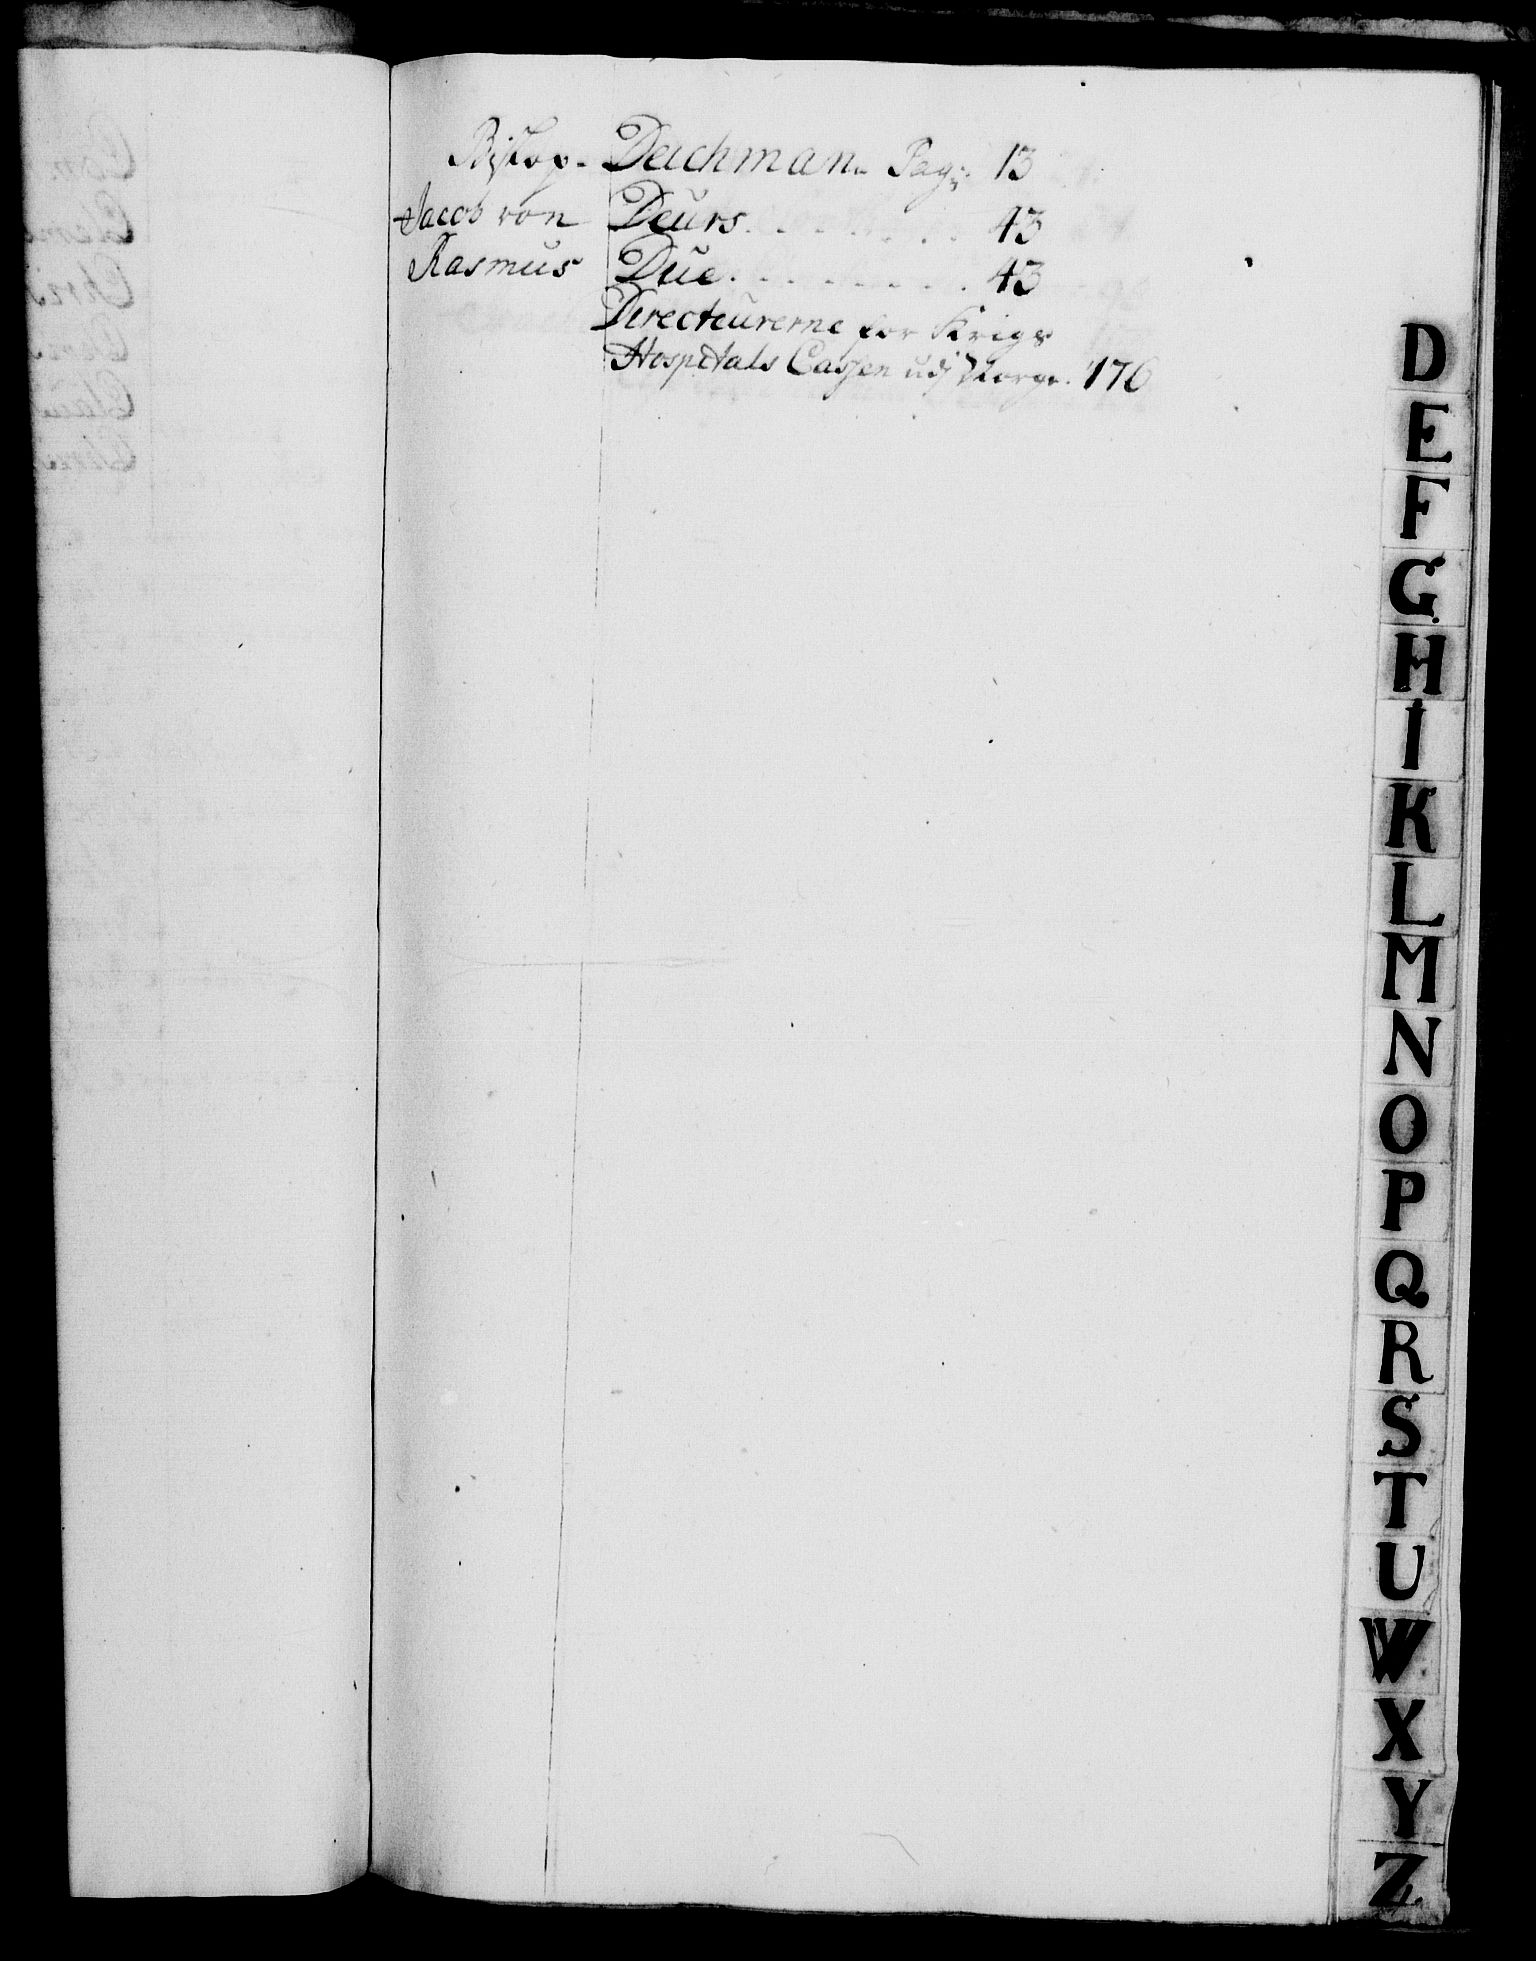 Biskop. Deichman. Pag: 13
Jacob von Deurs. . . . . . . . 43
Rasmus Due. . . . . . . . 43
Directeurerne for Krigs
Hospitals Cassen udj Norge. 176
D
E
F
G
H
I
K
L
M
N
O
P
Q
R
S
T
U
W
X
Y
Z